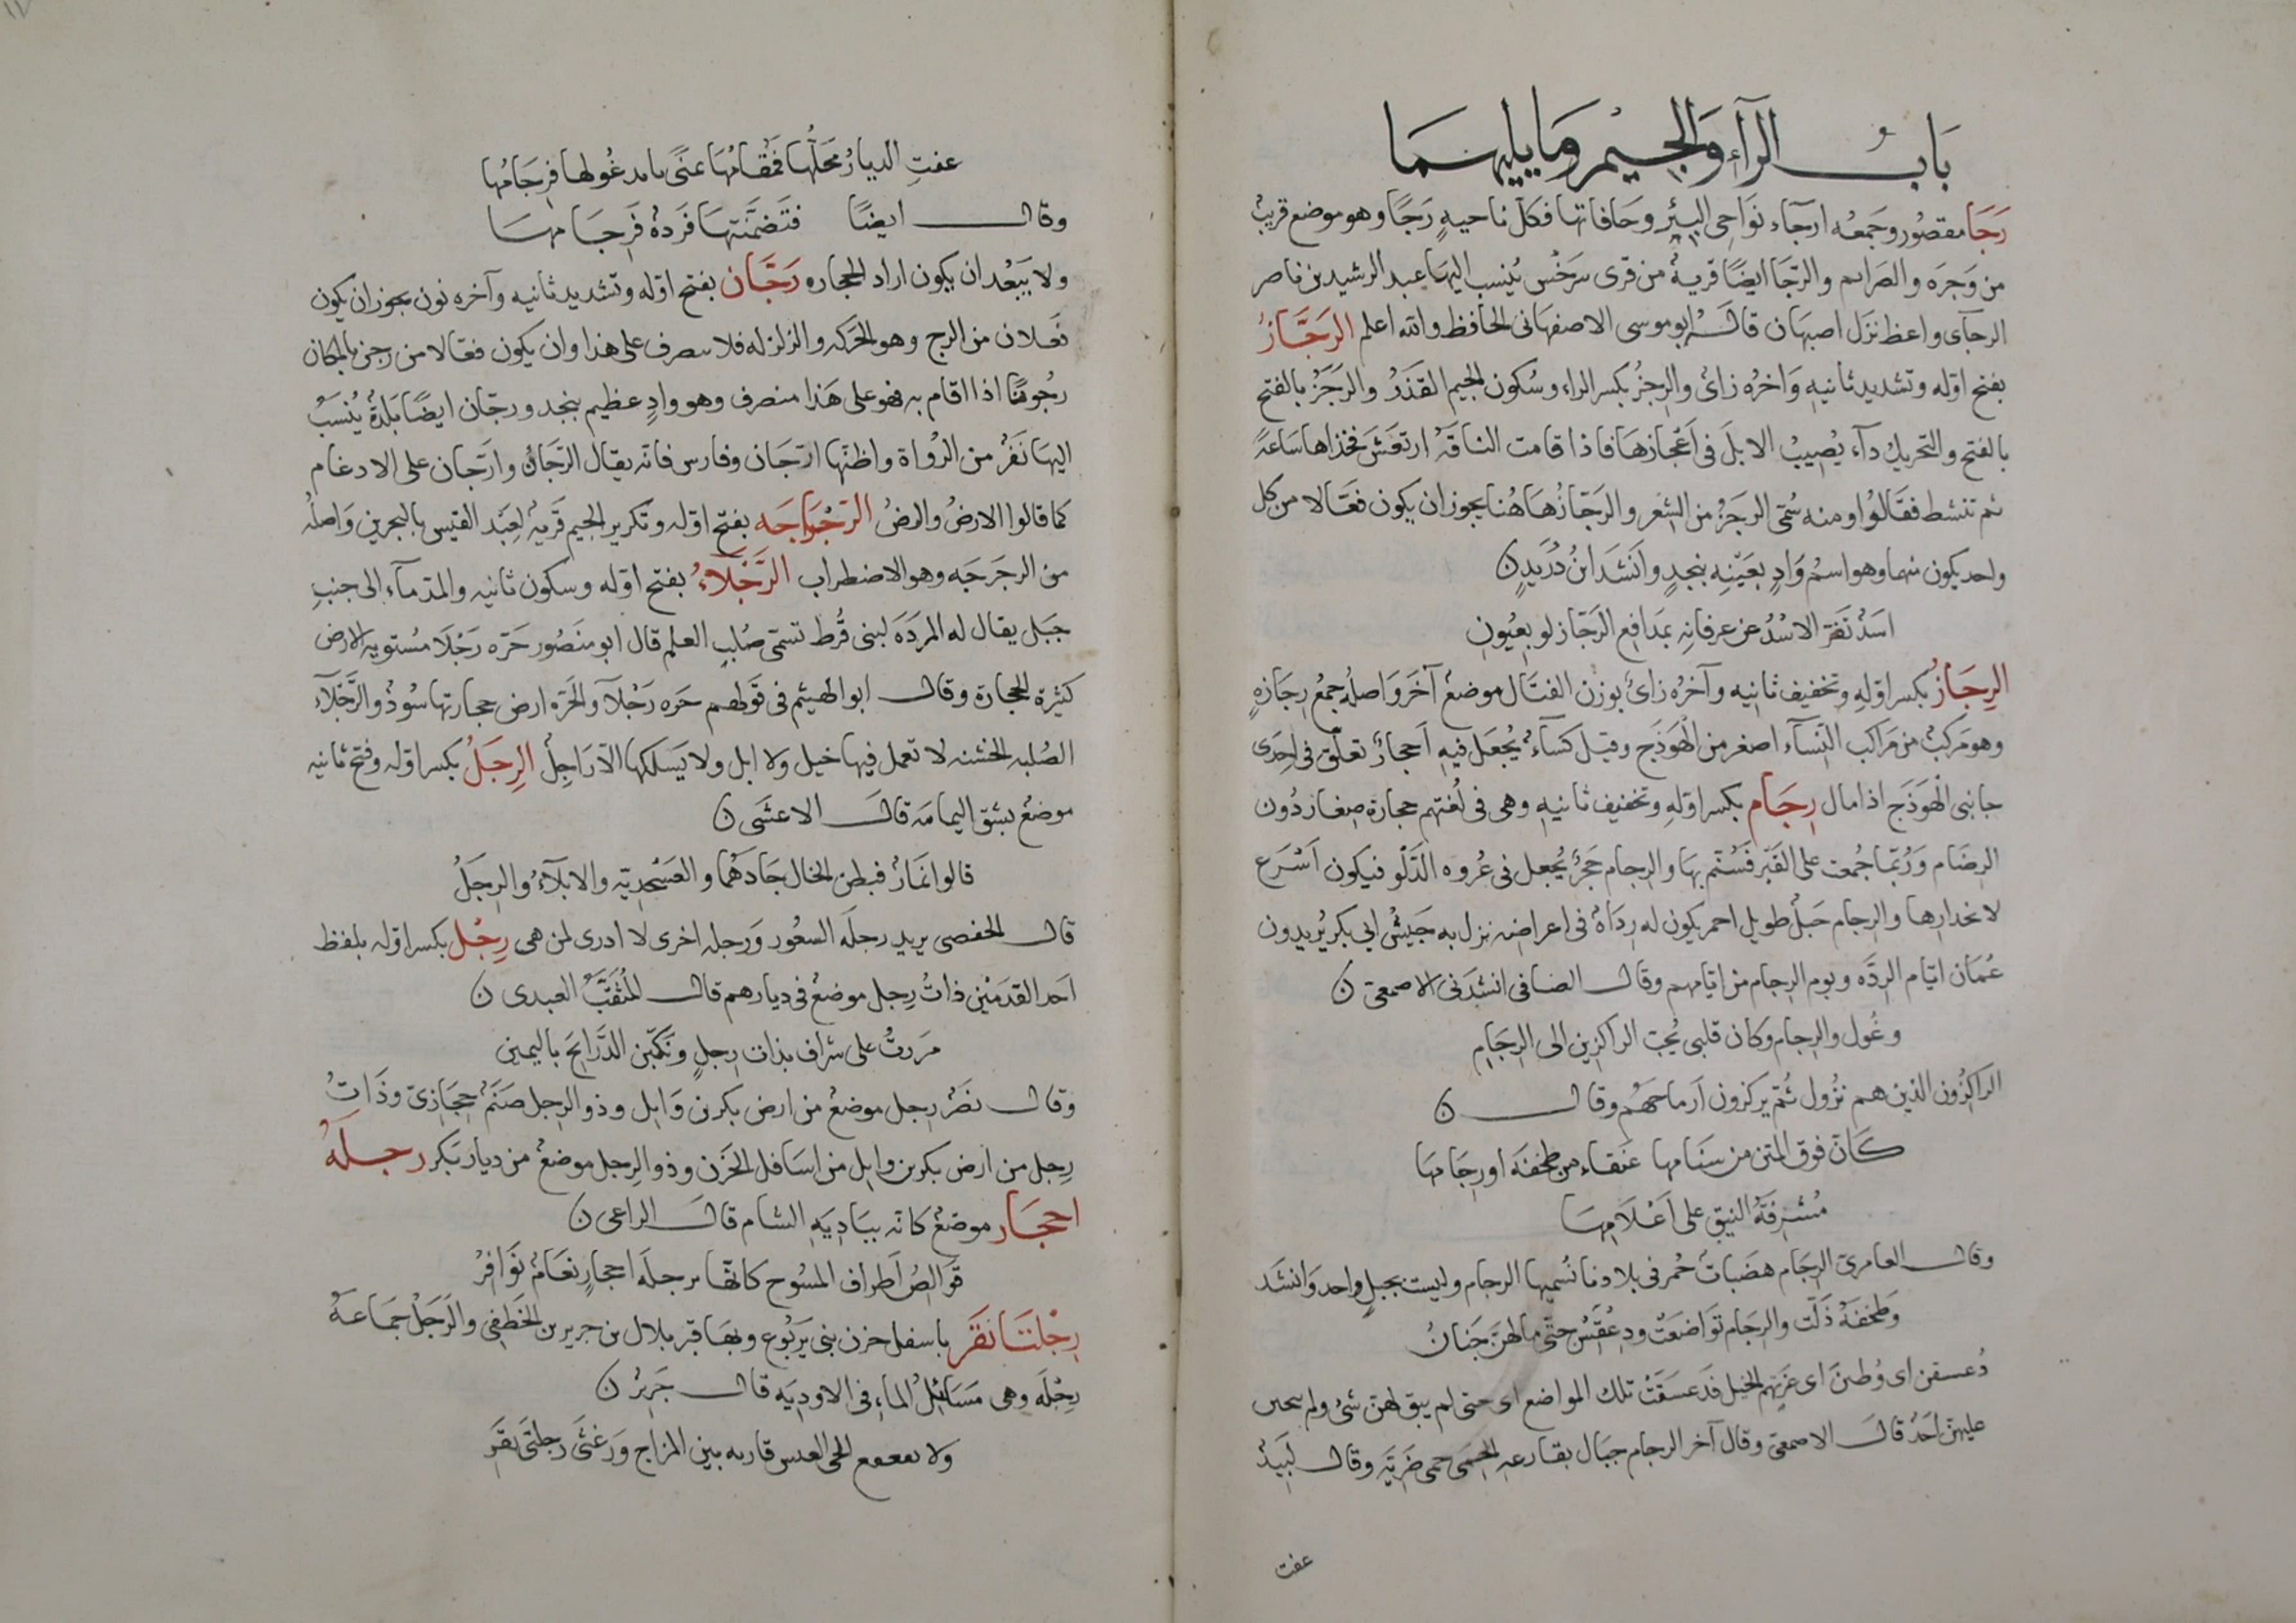 باب الراء والجيم وما يليهما
رَجَا مقصور وجمعه ارجآء نواحى البئر وحافاتها فكل ناحية رَجًا وهو موضع قريب
من وَجرَه والصرايم والرّجَا ايضًا قرية من قرى سرخس يُنسب اليها عبد الرشيد بن ناصر
الرجآى واعظ نزل اصبهان قال ابو موسى الاصفهانى الحافظ والله اعلم الرَجَّازُ
بفتح اوّله وتشديد ثانيه وَاخرُه زاىٌ والرِجزُ بكسر الراء وسُكون الجيم القذَرُ والرَجَزُ بالفتح
بالفتح والتحريك دآء يُصيبُ الابلَ فى اَعْجازهَا فاذا قامت الناقَهُ ارتعَشَ فخذاها ساعَةً
ثم تنشط فقالُوا ومنه سُمّى الرجَزُ من الشعر والرَجّازُ هَاهُنا يجوز ان يكون فعّالا من كل
واحد يكون منهما وهو اسمُ وَادٍ بعَيْنِه بنجدٍ واَنشَدَ ابنُ دُرَيدٍ ن
اسَدٌ تفرّ الاسْدُ عن عرفانِه بمَدَافِع الرَجّاز لو بعُيُونِ
الرِجَازُ بكسر اوّلهِ وتخفيف ثانيه وآخرُه زاىٌ بوزن القتال موضعٌ آخَرَ وَاصلُه جمعُ رِجَازهٍ
وهو مَركبٌ من مَراكب النّسآء اصغر من الهَوْدَج وقيل كسآءٌ يُجعَل فيهِ اَحجارٌ تعلّق فى احدَى
جانبى الْهَودَج اذا مال رِجَام بكسر اوّلهِ وتخفيف ثانيهِ وهى فى لُغتهم حجارة صغار دُون
الرضَام ورُبّما جُمعت على القَبْر فَسُنّم بهَا والرجام حَجرٌ يُجعل فى عُروه الدَلو فيكون اَسْرَع
لانحدارها والرجام جَبلٌ طويل احمر يكون له ردَاةٌ فى اعراضه نزل به جَيشُ ابى بكر يُريدون
عُمَان ايّام الرِدّه ويوم الرجام من ايّامهم وقال الضبابى انشدَنى الاصمعى ن
وغُول والرجام وكان قلبى يُحِبّ الراكزين الى الرجَامِ
الراكزُون الذين هم نزُول ثُمّ يركزون اَرماحهُم وقال ن
كَاَنّ فوق المتن من سنَامها عَنقاء من طخفَه او رجَامهَا
مُشرِفةُ النيق على اَعْلامِهَا
وقال العامرىّ الرِجَام هضَباتٌ حُمر فى بلادنا نُسمّيها الرجام وليست بجبلٍ واحد وَانشَد
وَطخفَهُ ذَلّت والرجَام تَوَاضعَتْ ودِعُقسْنَ حتّى ما لهنّ جَنانُ
دُعسقن اى وُطئنَ اى غزتهم الخيل فدعسَقَتْ تلك المواضع اى حتى لم يبق لهنّ شىٌ ولم
عليهنّ احَدٌ قال الاصمعى وقال آخر الرجام جبال بقارعهِ الحمى حمى ضريّه وقال لَبيدٌ
عفت
عفتِ الديارُ مَحَلُّها فَمُقامُهَا عنىً تابد غُولها فرِجَامُها
وقال ايضًا فتَضمَّنَتهَا فَردهٌ فَرجَامهَا
ولا يَبَعْد ان يكون اراد الحجاره رَجّان بفتح اوّله وتشديد ثانيه وآخره نون يجوز ان يكون
فعلان من الرج وهو الحَركه والزلزله فلا يصرف على هذا وان يكون فعّالا من رجن بالمكان
رجُونًا اذا اقام به فهو على هَذا منصرف وهو وادٍ عظيم بنجد ورجّان ايضًا بَلدةٌ يُنسَبُ
اليهَا نفَرٌ من الرُواة واظنّها ارّجَان وفارس فانّه يقال الرّجَان وارّجان على الادغام
كما قالوا الارضُ والرضُ الرَجْرَاجَه بفتح اوّله وتكرير الجيم قريهٌ لعَبْد القيس بالبحرين وَاصلُه
من الرجرجَه وهو الاضطراب الرَّجْلآءُ بفتح اوّله وسكون ثانيه والمدّ مآء الى جنبِ
جبَل يقال له المردَهَ لبنى قُرط تسمّى صُلب العلم قال ابو منصُور حَرّه رَجْلَا مُستويه الارض
كثيرة الحجارة وقال ابو الهيثم فى قولهم حرَه رَجْلآ والحَرّه ارض حجارتها سُودٌ والرَّجْلآء
الصُلبه الخشنه لا تعمل فيها خيل ولا ابل ولا يَسلكها الّا رَاجِلٌ الرِجَلُ بكسر اوّله وفتح ثانيه
موضعٌ بشق اليمامَه قال الاعشَى ن
قالوا نمَارٌ فبطن الخال جَادَهُما والعَسْجديّه والابلآءُ والرِجَلُ
قال الحفصى يريد رجلَه السعُور وَرجله اخرى لا ادرى لمن هى رِجْل بكسر اوّله بلفظ
احَد القدمَيْن ذاتُ رِجل موضعٌ فى ديارهم قال المُثقَّبُ العبدى ن
مرَرتُ على شراف بذات رجلٍ ونَكّبن الذّرَانحَ باليمين
وقال نصْرٌ رِجل موضعٌ من ارض بكر بن وَايل وذو الرِجل صنَمٌ حجَازىّ وذَاتُ
رِجل من ارض بكر بن وايل من اسَافل الحَزن وذو الرِجل موضعٌ من ديار بَكر رجلَةُ
احجَار موضعٌ كانّه ببَاديَهِ الشام قال الراعى ن
قَوالِصُ اَطراف المسُوح كانّهَا برجلَه احجارٍ نعَامٌ نَوَافرُ
رِجْلتَا نقَر باسفل حزن بنى يَربُوع وبهَا قبر بلال بن جرير بن الخَطفى والرَجَلُ جَمَاعةُ
رِجْلَه وهى مَسَائِلُ الماءِ فى الاوديَه قال جَريرٌ ن
ولا الحى العدس قاربه بين المزاج وَرَعْنَى رجلتَى بقَر